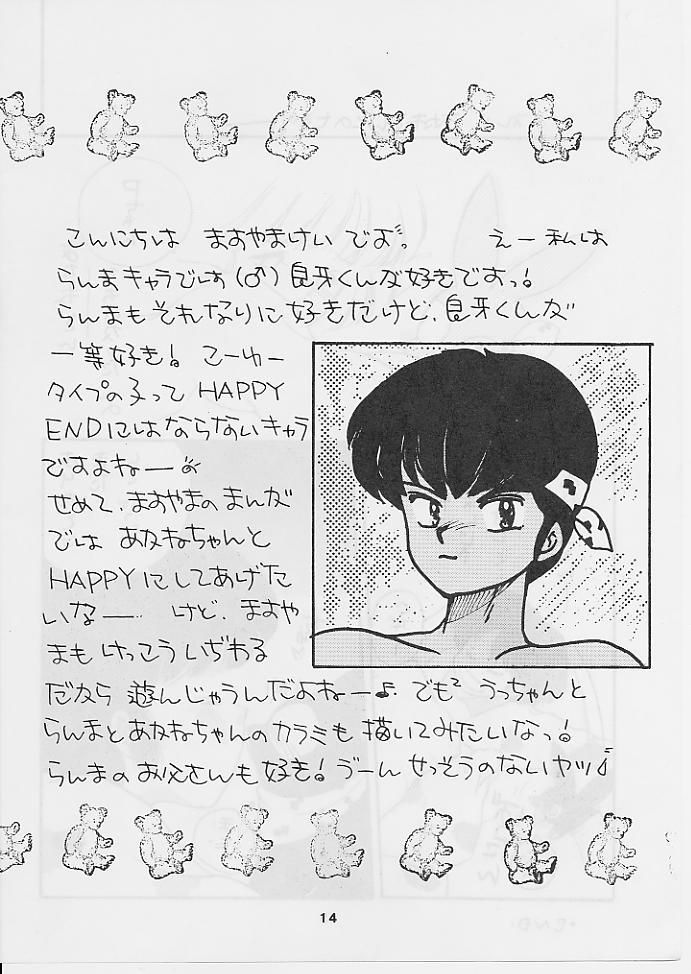 こんにちは ますやまけいです。 えー私は
らんまキャラでは(♂)良牙くんが好きですっ!
らんまもそれなりに好きだけど、良牙くんが
一等好き! こーゆー
タイプの子って HAPPY
ENDにはならないキャラ
ですよねー
せめて、ますやまのまんが
では あかねちゃんと
HAPPYにしてあげた
いなー けど、ますや
まもけっこういぢわる
だから 遊んじゃうんだよねー♪ でも² うっちゃんと
らんまとあかねちゃんのカラミも描いてみたいなっ!
らんまのお父さんも好き! うーん せっそうのないヤツ♪
14